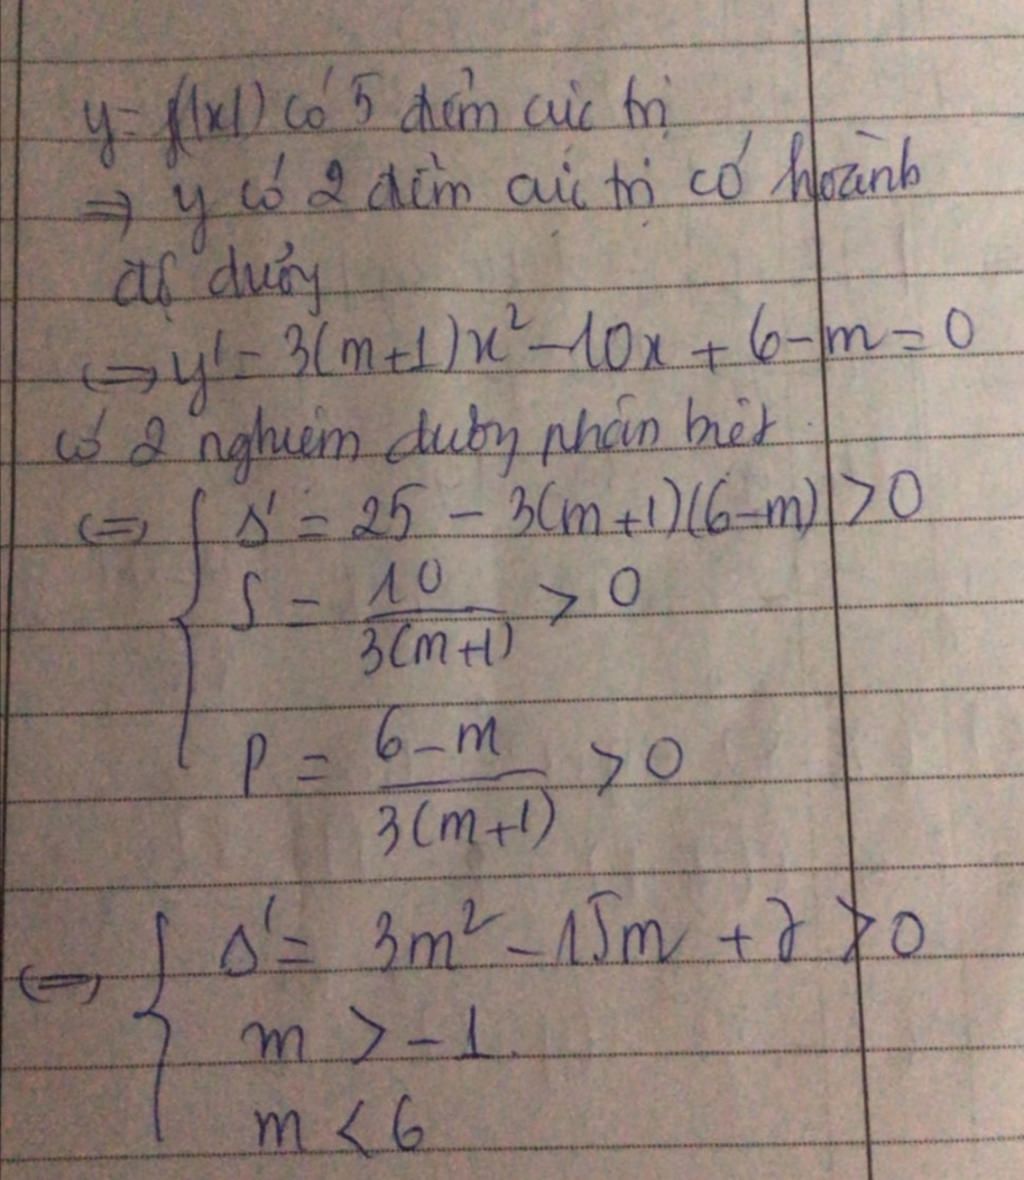 y = f(|x|) có 5 điểm cực trị
⇒ y có 2 điểm cực trị có hoành
độ dương
⇔ y' = 3(m+1)x² - 10x + 6 - m = 0
có 2 nghiệm dương phân biệt
⇔ { Δ' = 25 - 3(m+1)(6-m) > 0
S = 10/3(m+1) > 0
P = 6-m/3(m+1) > 0
⇔ { Δ' = 3m² - 15m + 7 > 0
m > -1.
m < 6